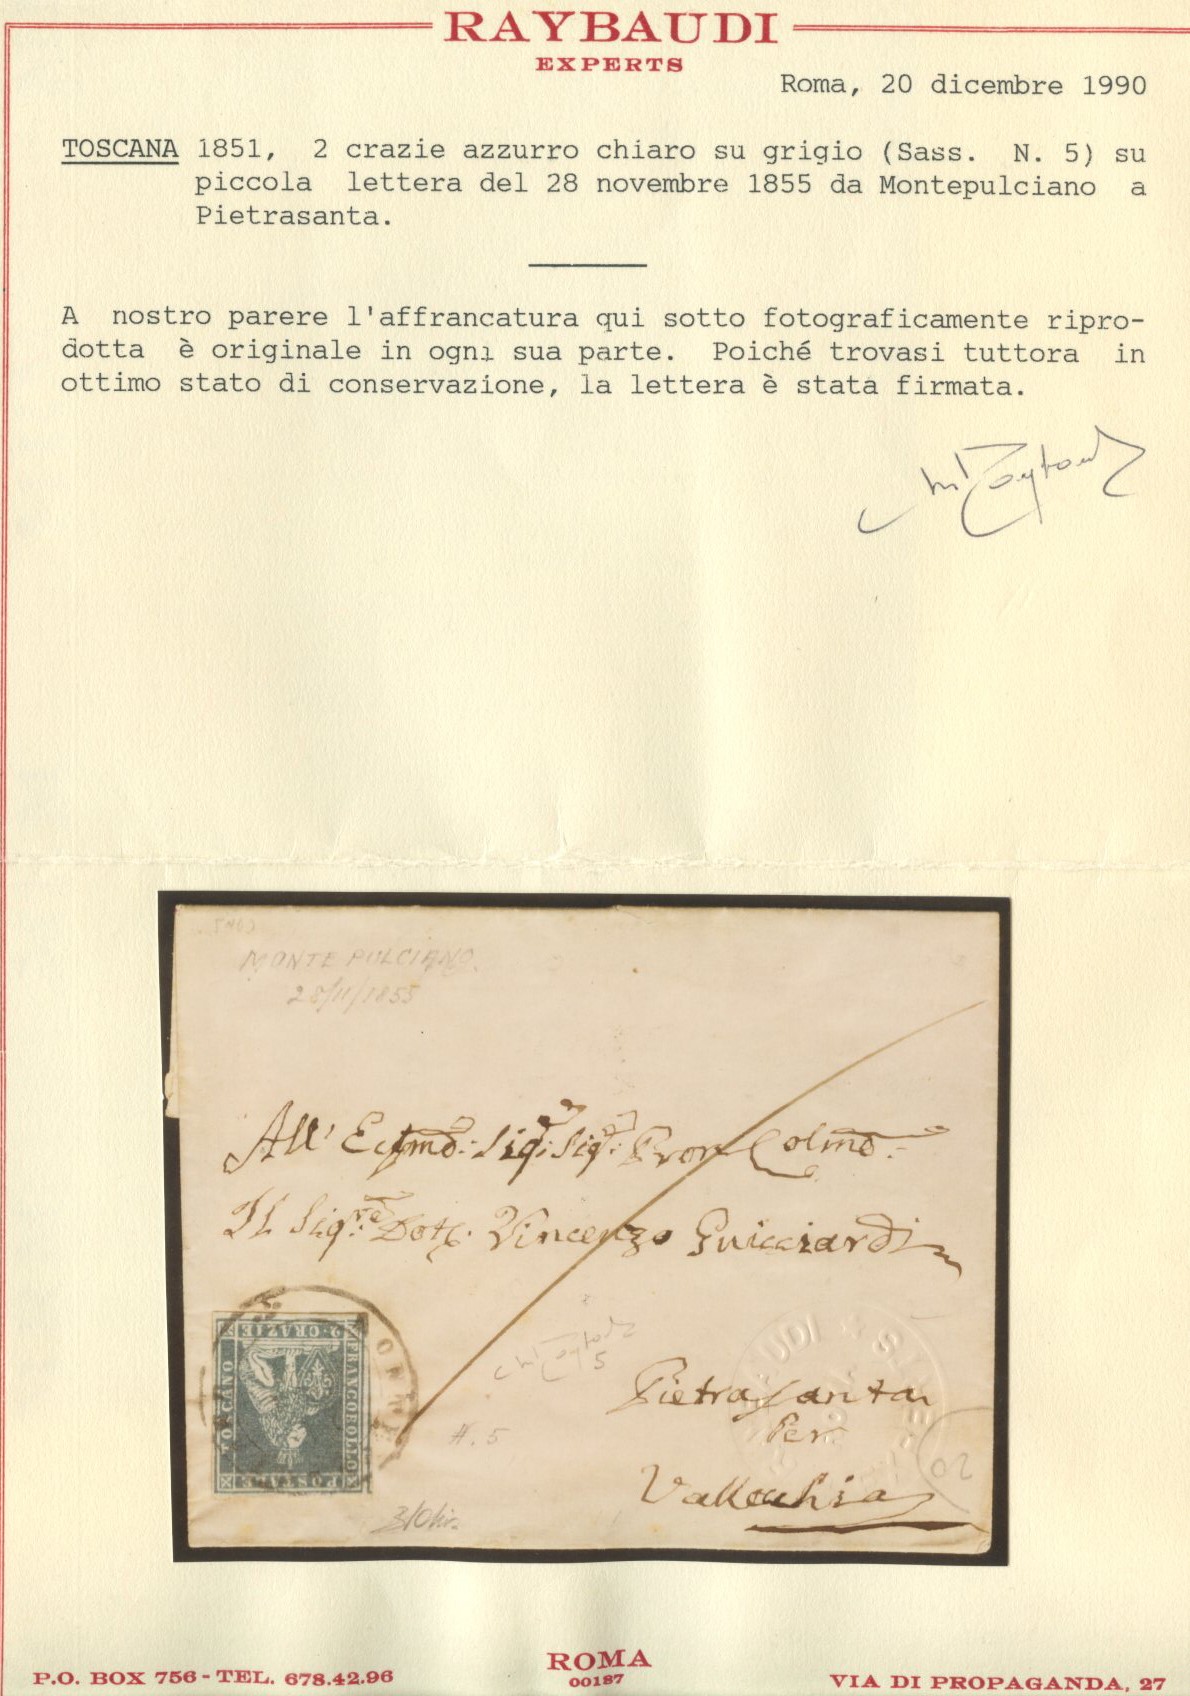 RAYBAUDI
EXPERTS
Roma, 20 dicembre 1990
TOSCANA 1851, 2 crazie azzurro chiaro su grigio (Sass. N. 5) su
piccola lettera del 28 novembre 1855 da Montepulciano a
Pietrasanta.
A nostro parere l'affrancatura qui sotto fotograficamente ripro-
dotta è originale in ogni sua parte. Poiché trovasi tuttora in
ottimo stato di conservazione, la lettera è stata firmata.
MONTE PULCIANO
28/11/1855
All' Sigr: Sigr: Pron Colmo:
Il Sigre: Dott. Vincenzo Guicciardi
2. CRAZIE
FRANCOBOLLO
POSTALE
TOSCANO
5
#. 5
Pietra Santa
Per
Vallecchia
RAYBAUDI
ROMA
00187
P.O. BOX 756 - TEL. 678.42.96
VIA DI PROPAGANDA, 27